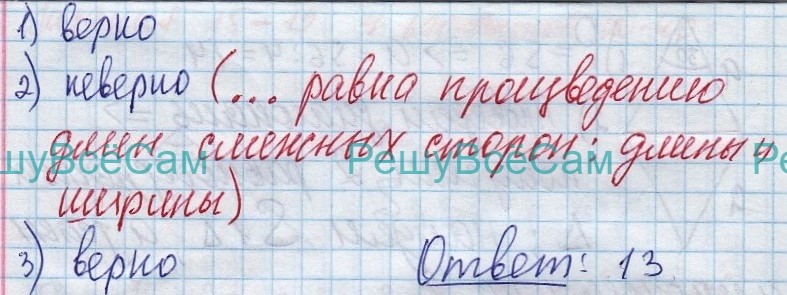 1) верно
2) неверно (... равна произведению
длин смежных сторон: длины и
шуВсёСам РешуВсёСам Ре
ширины)
3) верно Ответ: 13